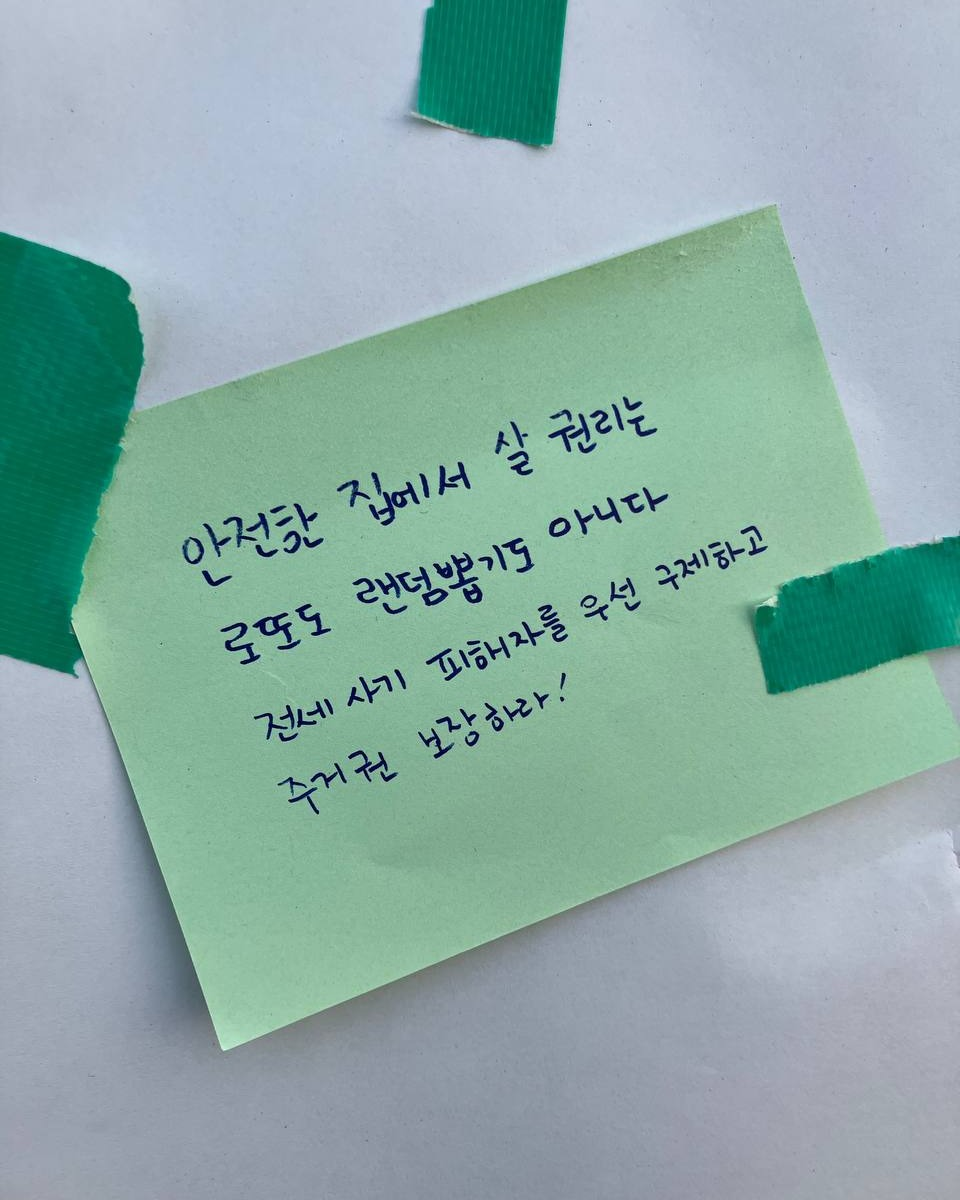 안전한 집에서 살 권리는
로또도 랜덤뽑기도 아니다
전세사기 피해자를 우선 구제하고
주거권 보장하라!